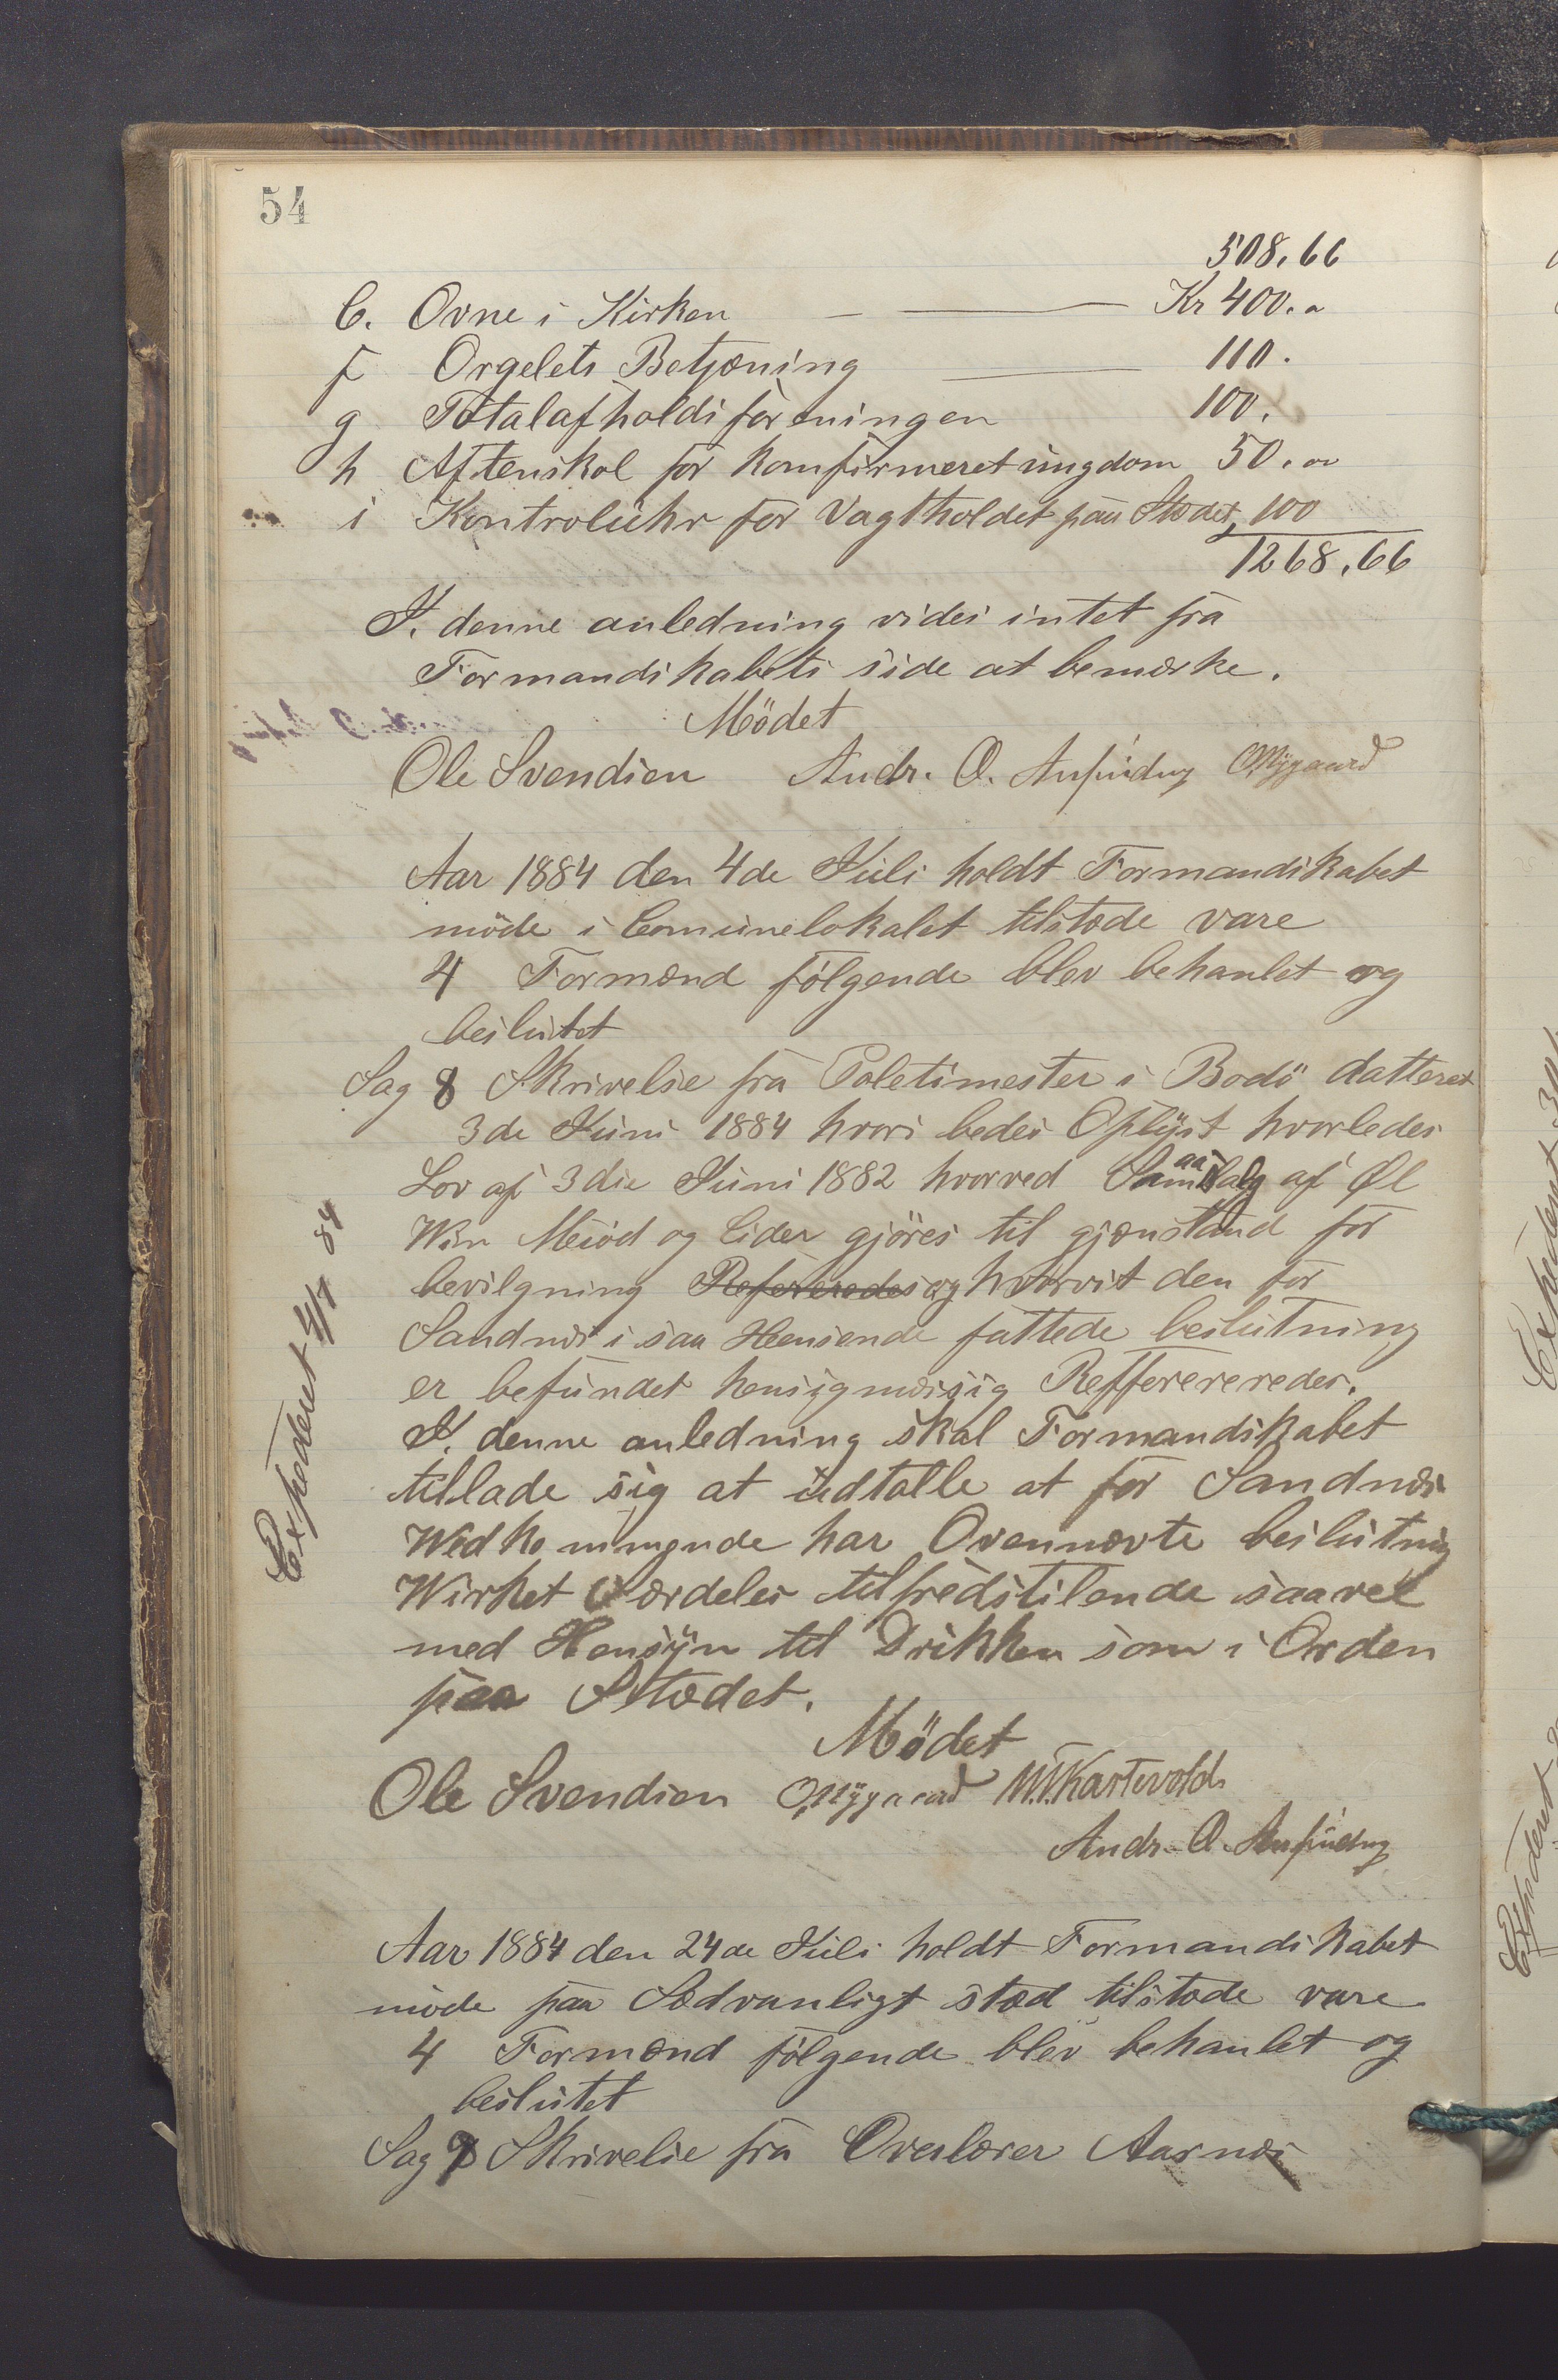 54
508.66
C. Ovne i Kirken — Kr 400.00
f Orgelets Betjæning — 110.
g Totalafholdsforeningen 100.
h Aftenskol for komfirmeret ungdom 50.00
i Kontroluhr for Vagtholdet paa Stædet, 100
1268,66
I. denne anledning vides intet fra
Formandskabets side at bemærke.
Mödet
Ole Svendsen Andr. O. O. Nygaard
Aar 1884 den 4de Juli holdt Formandskabet
möde i Comunelokalet tilstæde vare
4 Formænd fölgende blev behanlet og
beslutet
Sag 8 Skrivelse fra Poletimester i Bodö datteret
3de Juni 1884 hvori bedes Oplyst hvorledes
Lov af 3die Juni 1882 hvorved Smaasalg af Øl
Win Meiöd og Cider gjöres til gjænstand for
bevilgning Refereredes og hvorvit den for
Sandnæs i saa Hensende fattede beslutning
er befundet hensigmæsig Refferereredes.
I. denne anledning skal Formandskabet
tillade sig at udtalle at for Sandnæs
Wedkommende har Ovennævte beslutnig
Wirket særdeles tilfredstilende saavel
med Hensyn til Drikken som i Orden
paa Stædet.
Mödet
Ole Svendsen O. Nygaard M.T. Kartevold
Andr. O.
Aar 1884 den 24de Juli holdt Formandskabet
möde paa Sædvanligt stæd tilstæde vare
4 Formænd fölgende blev behanlet og
beslutet
Sag 9 Skrivelse fra Overlærer Aarnæs
Expederet 4/7 84